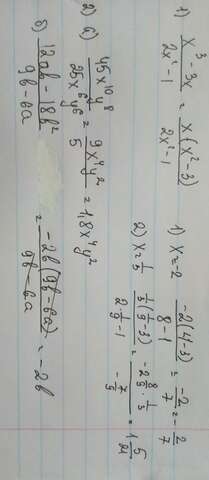 1) (x³ - 3x)/(2x² - 1) = x(x² - 3)/(2x² - 1)
1) x = -2 -2(4-3)/(8-1) = -2/7 = -2/7
2) x = 1/3 (1/3(1/9 - 3))/(2/9 - 1) = (-2 8/9 · 1/3)/(-7/9) = 1 5/21
2) б) 45x¹⁰y⁸/25x⁶y⁶ = 9x⁴y²/5 = 1,8x⁴y²
б) (12ab - 18b²)/(9b - 6a) = -2b(9b - 6a)/(9b - 6a) = -2b